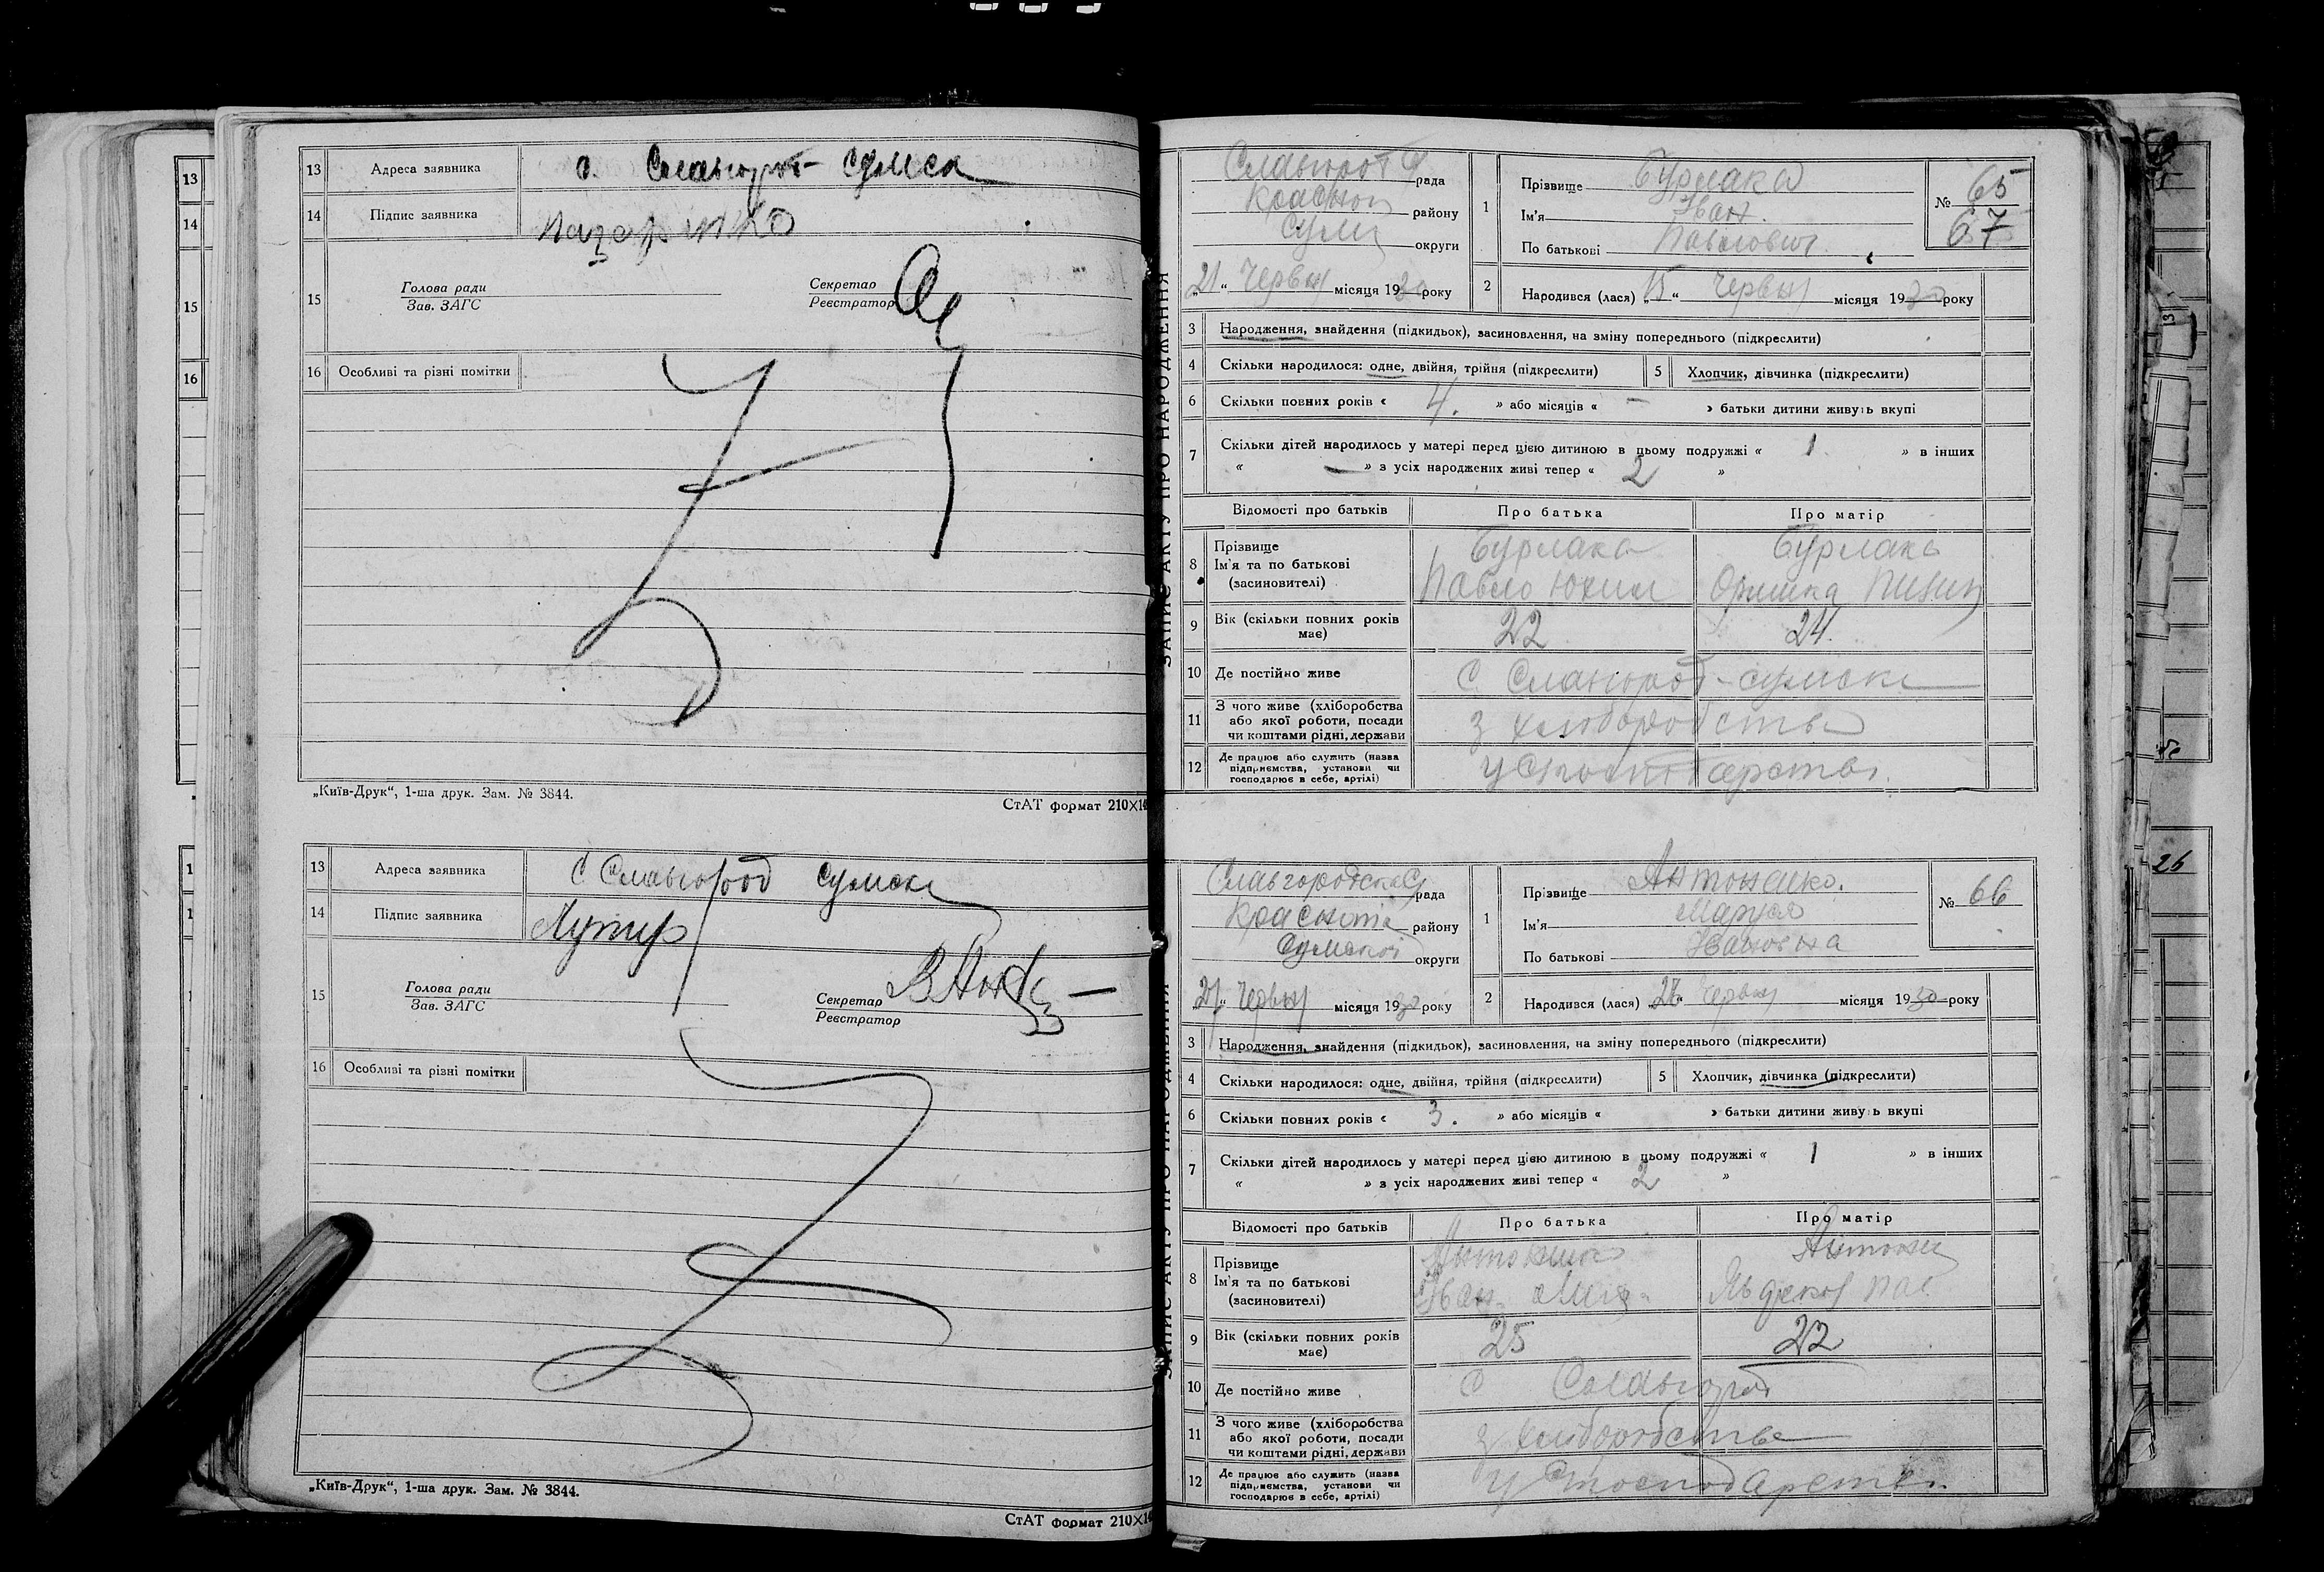 13 Адреса заявника с. Славгород Сумск
14 Підпис заявника Назаренко
15 Голова ради
Зав. ЗАГС
Секретар
Реєстратор
16 Особливі та різні помітки
„Київ-Друк“, 1-ша друк. Зам. № 3844.
СтАТ формат 210×14
13 Адреса заявника с Славгород Сумск
14 Підпис заявника
15 Голова ради
Зав. ЗАГС
Секретар
Реєстратор
16 Особливі та різні помітки
„Київ-Друк“, 1-ша друк. Зам. № 3844.
СтАТ формат 210×14
ЗАПИС АКТУ ПРО НАРОДЖЕННЯ
Славгород С рада
Красноп району
Сумс округи
„21“ Червня місяця 1930 року
1 Прізвище Бурлака
Ім'я Іван
По батькові Павлович
№ 65
67
2 Народився (лася) „15“ Червня місяця 1930 року
3 Народження, знайдення (підкидьок), засиновлення, на зміну попереднього (підкреслити)
4 Скільки народилося: одне, двійня, трійня (підкреслити)
5 Хлопчик, дівчинка (підкреслити)
6 Скільки повних років « 4. » або місяців « – » батьки дитини живуть вкупі
7 Скільки дітей народилось у матері перед цією дитиною в цьому подружжі « 1 » в інших
« — » з усіх народжених живі тепер « 2 »
Відомості про батьків Про батька Про матір
8 Прізвище
Ім'я та по батькові
(засиновителі)
Бурлака
Павло Юхим
Бурлака
Оришка
9 Вік (скільки повних років має) 22 24.
10 Де постійно живе С Славгород-Сумськ
11 З чого живе (хліборобства
або якої роботи, посади
чи коштами рідні, держави
з хліборобства
12 Де працює або служить (назва
підприємства, установи чи
господарює в себе, артілі)
у С господарстві
ЗАПИС АКТУ ПРО НАРОДЖЕННЯ
Славгородська С рада
Краснопіл району
Сумської округи
„27“ Червня місяця 1930 року
1 Прізвище Антоненко.
Ім'я Маруся
По батькові Івановна
№ 66
2 Народився (лася) Червня місяця 1930 року
3 Народження, знайдення (підкидьок), засиновлення, на зміну попереднього (підкреслити)
4 Скільки народилося: одне, двійня, трійня (підкреслити)
5 Хлопчик, дівчинка (підкреслити)
6 Скільки повних років « 3. » або місяців « » батьки дитини живуть вкупі
7 Скільки дітей народилось у матері перед цією дитиною в цьому подружжі « 1 » в інших
« » з усіх народжених живі тепер « 2 »
Відомості про батьків Про батька Про матір
8 Прізвище
Ім'я та по батькові
(засиновителі)
Антоненко
Іван
Антонен
9 Вік (скільки повних років має) 25 22
10 Де постійно живе С Славгород
11 З чого живе (хліборобства
або якої роботи, посади
чи коштами рідні, держави
з хліборобства
12 Де працює або служить (назва
підприємства, установи чи
господарює в себе, артілі)
у С господарстві
13
14
15
16
26